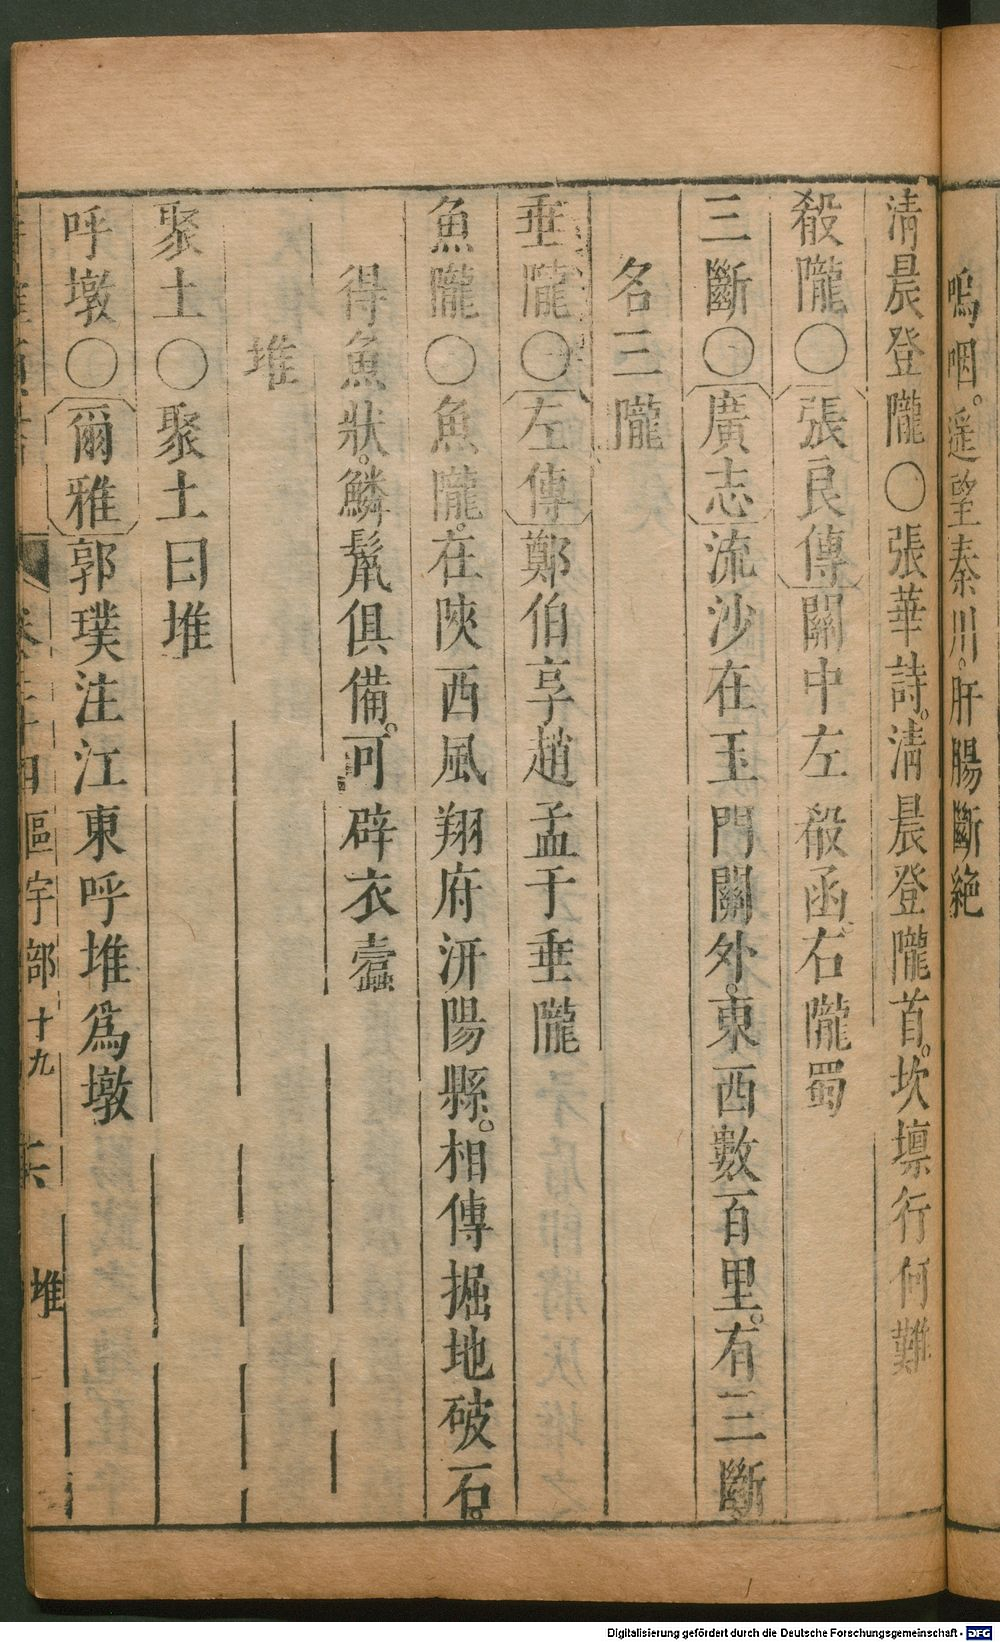 嗚咽。遥望秦川。肝腸斷絶
清晨登隴〇張華詩。清晨登隴首。坎壈行何難
殽隴〇張良傳關中左殽函。右隴蜀
三斷〇廣志流沙在玉門關外。東西數百里。有三斷
名三隴
垂隴〇左傳鄭伯享趙孟于垂隴
魚隴〇魚隴。在陝西風翔府汧陽縣。相傳掘地破石。
得魚狀。鱗鬣俱備。可辟衣蠹
堆
聚土〇聚土曰堆
呼墩〇爾雅郭璞注江東呼堆爲墩
區宇部十九
堆
Digitalisierung gefördert durch die Deutsche Forschungsgemeinschaft - DFG